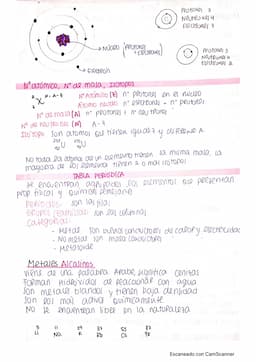 Protones 3
Neutrones 4
Electrones 3
Núcleo (Protones
Neutrones)
Protones 3
Neutrones
Electrones
Electrón
Nº atómico, Nº de masa, Isótopos
X
N = A - Z
Nº Atómico (Z) nº protones en el núcleo
Átomo neutro nº electrones = nº protones
Nº de masa (A) nº protones + neutrones
Nº de neutrones (N) A - Z
Isótopo son átomos que tienen iguales Z y difieren A
U U
No todos los átomos de un elemento tienen la misma masa, la
mayoría de los elementos tienen 2 o más isótopos
TABLA PERIÓDICA
Se encuentran agrupados los elementos que presentan
prop físicas y químicas semejante
PERIODOS son las filas
GRUPOS/Familias son las columnas
Categorías:
- Metal son buenos conductores de calor y electricidad
- No metal son malos conductores
- Metaloide
Metales Alcalinos
Viene de una palabra Árabe significa cenizas
Forman hidróxidos al reaccionar con agua
Son metales blandos y tienen baja densidad
Son los más activos químicamente
No se encuentran libre en la naturaleza
3 11 19 37 55 87
Li Na K Rb Cs Fr
Escaneado con CamScanner